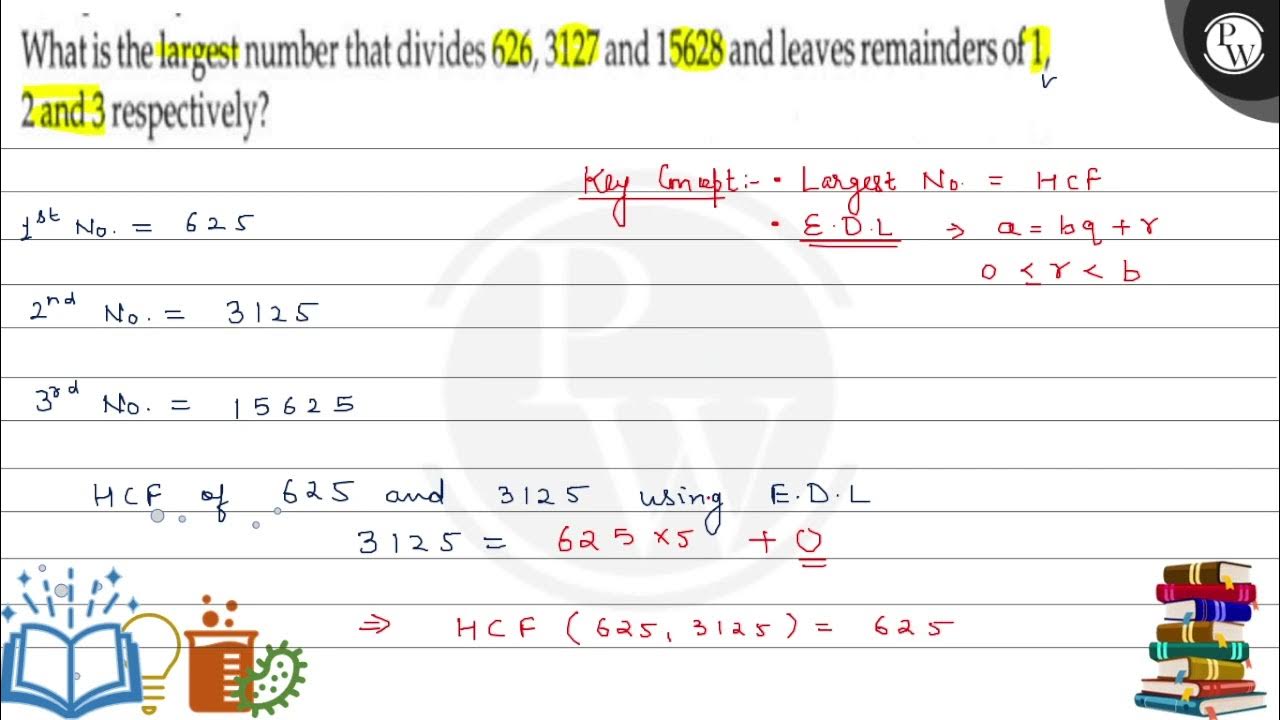 What is the largest number that divides 626, 3127 and 15628 and leaves remainders of 1,
2 and 3 respectively?
r
PW
Key Concept:- • Largest No. = HCF
1st No. = 625
• E.D.L → a = bq + r
0 ≤ r < b
2nd No. = 3125
3rd No. = 15625
PW
HCF of 625 and 3125 using E.D.L
3125 = 625 × 5 + 0
⇒ HCF (625, 3125) = 625